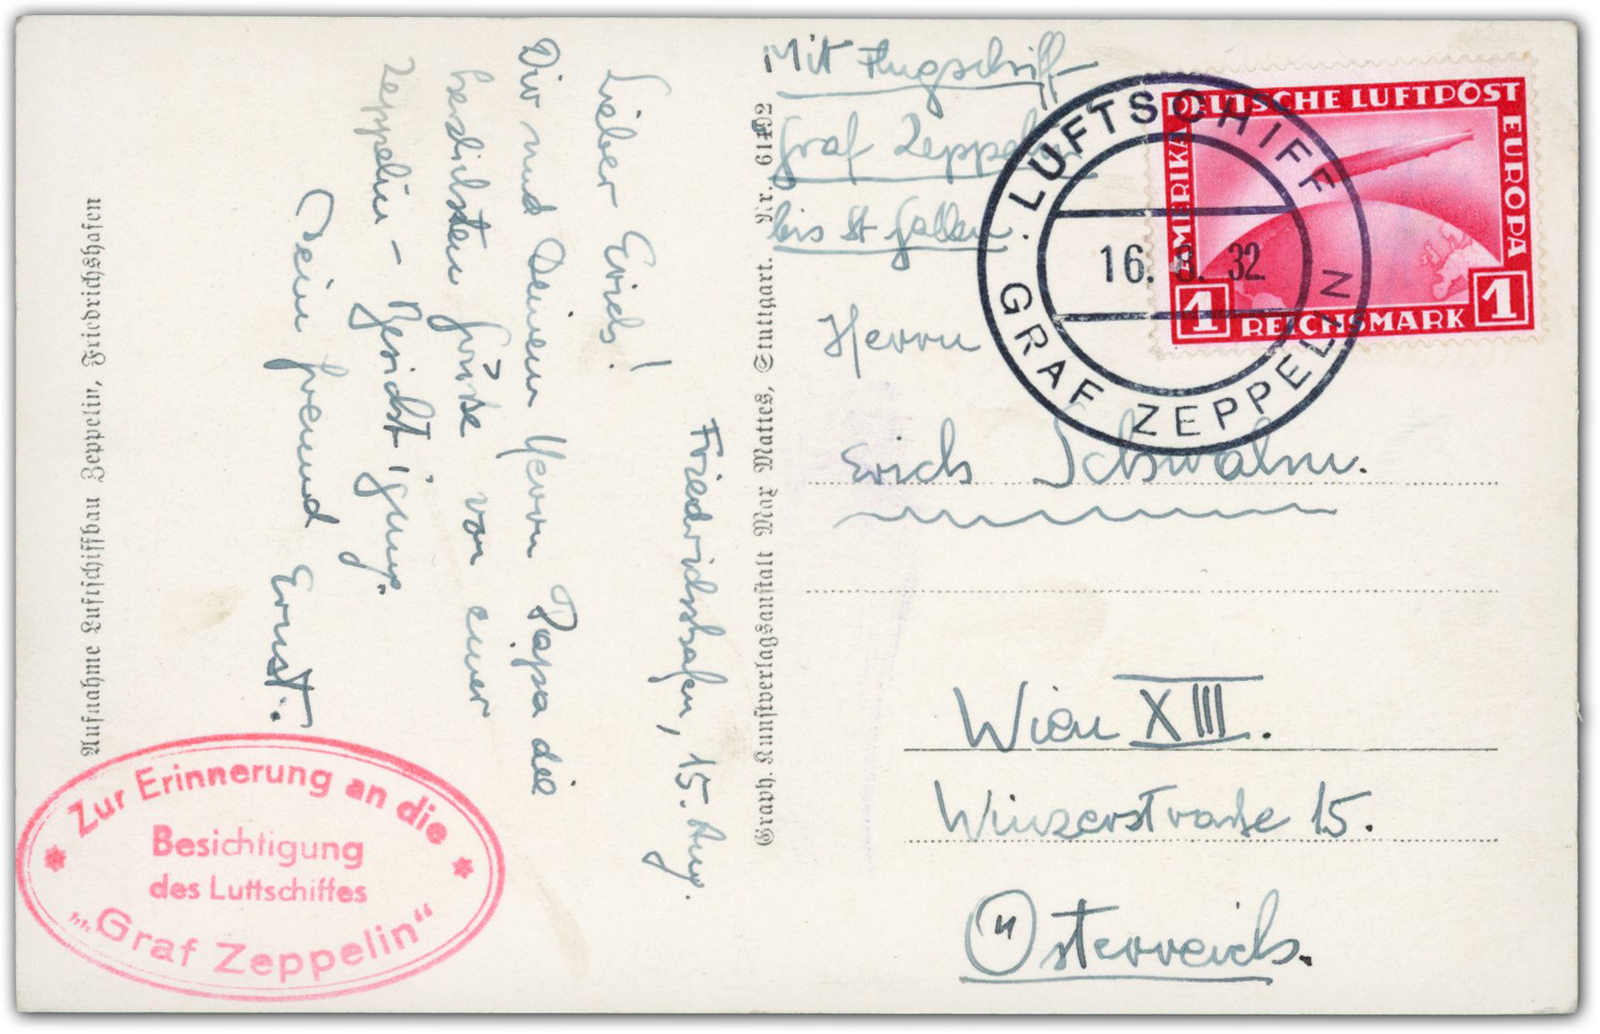 Mit Flugschiff
Graf Zeppelin
bis St Gallen.
DEUTSCHE LUFTPOST
AMERIKA
EUROPA
1 REICHSMARK 1
LUFTSCHIFF
16. 8. 32.
GRAF ZEPPELIN
Herrn
Erich Schwalm.
Wien XIII.
Winzerstraße 15.
Österreich.
Graph. Kunstverlagsanstalt Max Mattes, Stuttgart. Nr. 61402
Friedrichshafen, 15. Aug.
Lieber Erich!
Dir und Deinem Herrn Papa die
herzlichsten Grüße von einer
Zeppelin-Besichtigung.
Dein Freund Ernst.
Aufnahme Luftschiffbau Zeppelin, Friedrichshafen
Zur Erinnerung an die
Besichtigung
des Luftschiffes
„Graf Zeppelin“